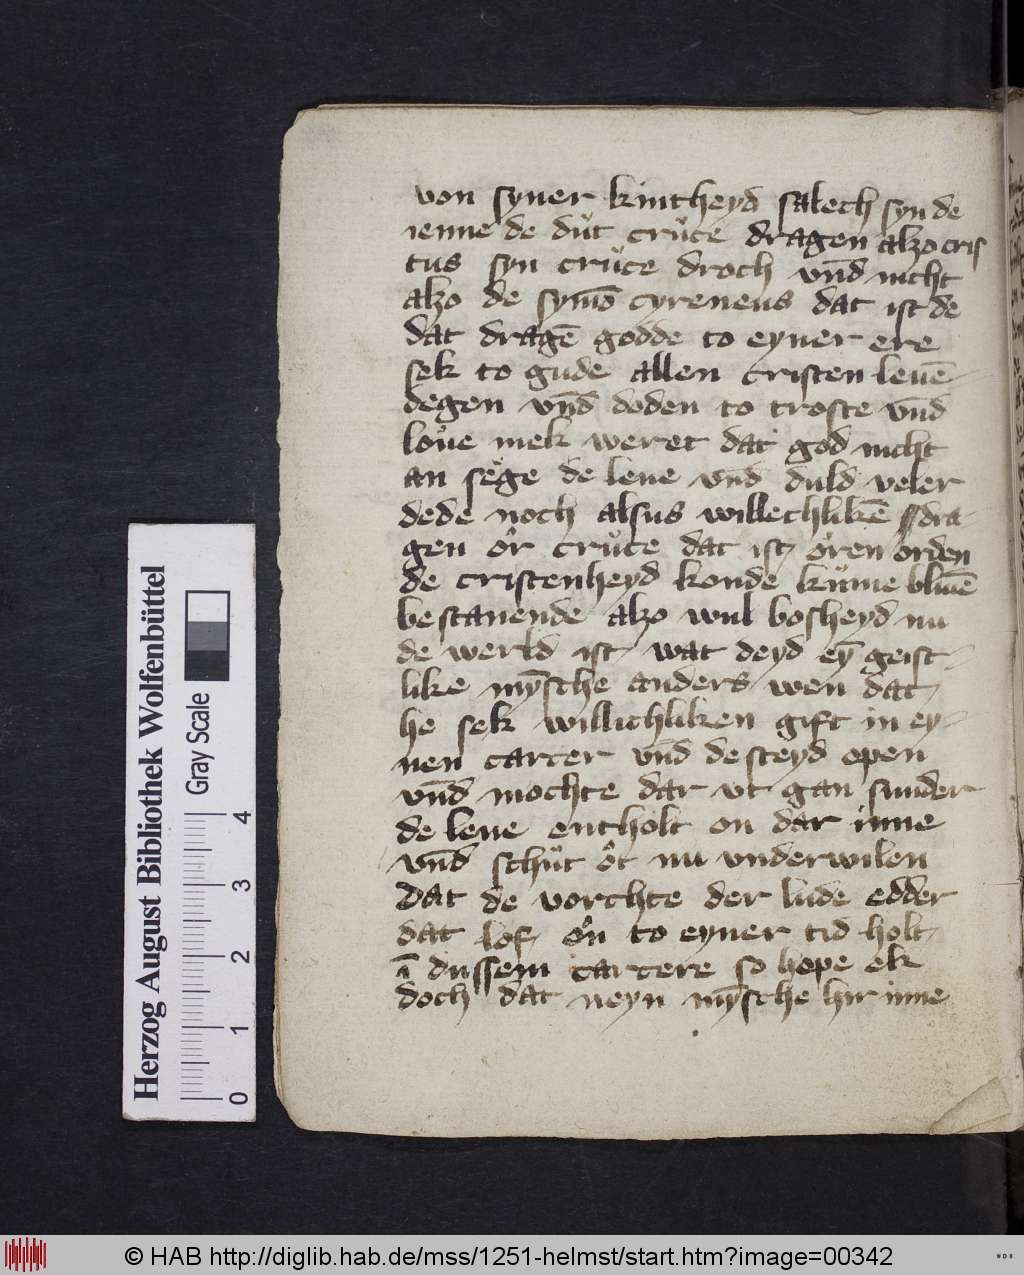 von syner kintheyd salech syn de
ienne de dut cruce dragen alzo cris
tus syn cruce droch vn̄d nicht
alzo de symō cyreneus dat ist de
dat dragē godde to eyner ere
sek to gude allen cristen leuē
degen vn̄d doden to troste vn̄d
loue mek weret dat god nicht
an sege de leue vn̄d duld veler
dede noch alsus willechlikē dra-
gen ör cruce dat ist ören orden
de cristenheyd konde kume bliuē
bestanende alzo wul bosheyd nu
de werld ist wat deyd eȳ geist-
like mȳsche anders wen dat
he sek willichliken gift in ey-
nen carcer vn̄d de steyd open
vn̄d mochte dar vt gan sunder
de leue entholt on dar inne
vn̄d schüt öt nu vnderwilen
dat de vorchte der lude edder
dat lof ön to eyner tid holt
ī dussem carcere so hope ek
doch dat neyn mȳsche hir inne
Herzog August Bibliothek Wolfenbüttel
Gray Scale
0 1 2 3 4
© HAB http://diglib.hab.de/mss/1251-helmst/start.htm?image=00342